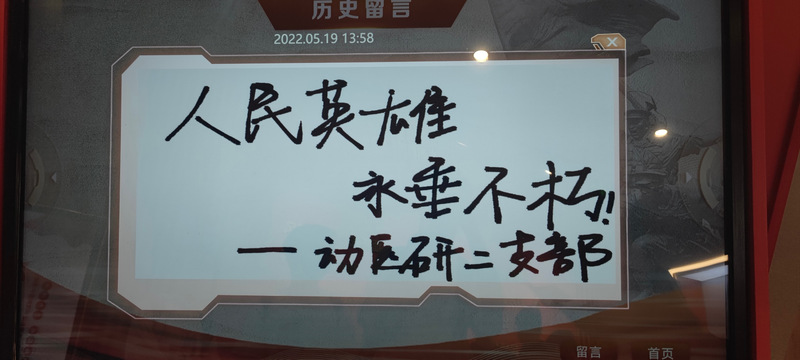 历史留言
2022.05.19 13:58
人民英雄
永垂不朽!!
一动医研二支部
留言 首页